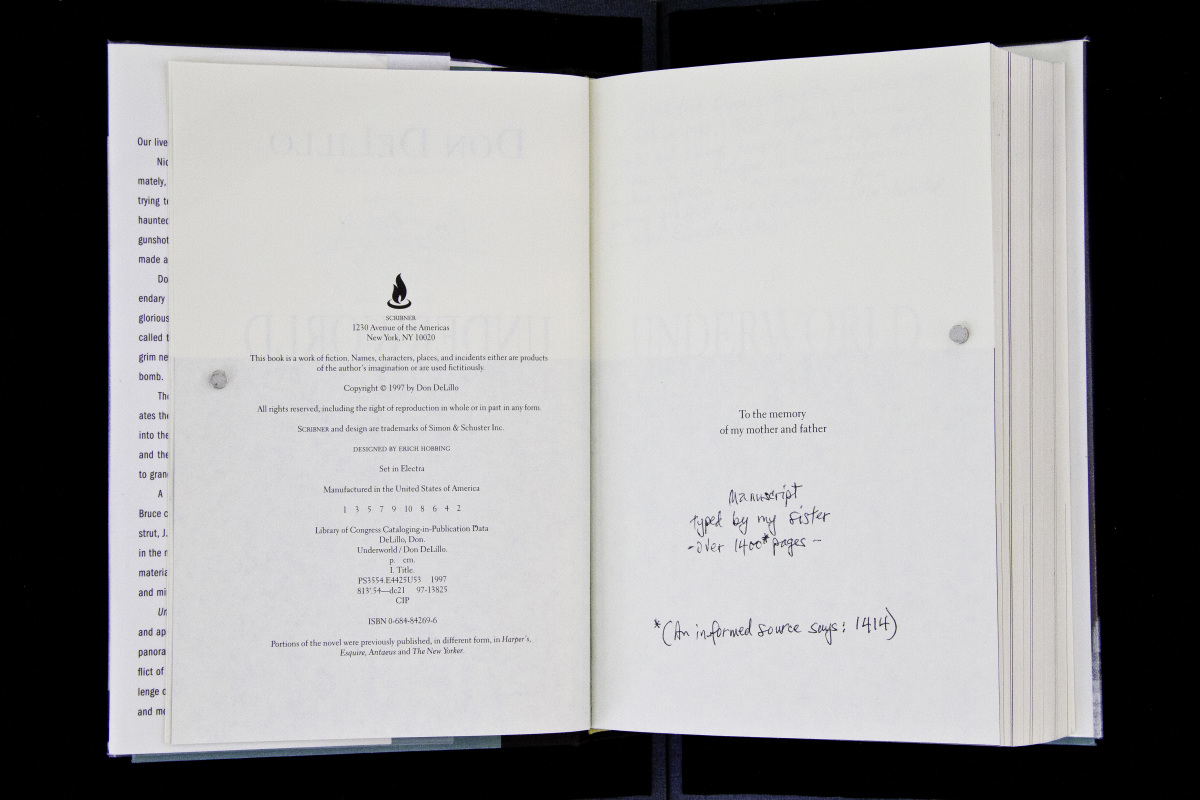 Our live
Nic
mately,
trying t
haunted
gunshot
made a
Do
endary
glorious
called t
grim ne
bomb.
Th
ates the
into the
and the
to gran
A
Bruce c
strut, J.
in the r
materia
and mi
Un
and ap
panora
flict of
lenge o
and me
DON DELILLO
UNDERWORLD
SCRIBNER
1230 Avenue of the Americas
New York, NY 10020
This book is a work of fiction. Names, characters, places, and incidents either are products
of the author's imagination or are used fictitiously.
Copyright © 1997 by Don DeLillo
All rights reserved, including the right of reproduction in whole or in part in any form.
SCRIBNER and design are trademarks of Simon & Schuster Inc.
DESIGNED BY ERICH HOBBING
Set in Electra
Manufactured in the United States of America
1 3 5 7 9 10 8 6 4 2
Library of Congress Cataloging-in-Publication Data
DeLillo, Don.
Underworld / Don DeLillo.
p. cm.
I. Title.
PS3554.E4425U53 1997
813'.54—dc21 97-13825
CIP
ISBN 0-684-84269-6
Portions of the novel were previously published, in different form, in Harper's,
Esquire, Antaeus and The New Yorker.
To the memory
of my mother and father
Manuscript
typed by my sister
- over 1400* pages -
*(An informed source says: 1414)